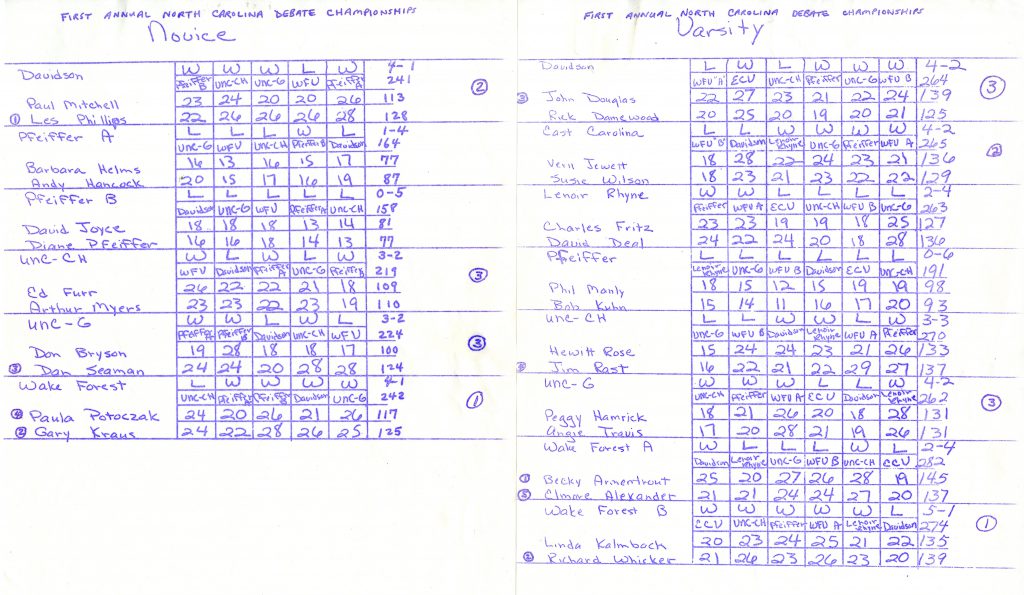 FIRST ANNUAL NORTH CAROLINA DEBATE CHAMPIONSHIPS
Novice
Davidson W W W L W 4-1
Pfeiffer B UNC-CH UNC-G WFU Pfeiffer A 241 ②
Paul Mitchell 23 24 20 20 26 113
① Les Phillips 22 26 26 26 28 128
Pfeiffer A L L L W L 1-4
UNC-G WFU UNC-CH Pfeiffer B Davidson 164
Barbara Helms 16 13 16 15 17 77
Andy Hancock 20 15 17 16 19 87
Pfeiffer B L L L L L 0-5
Davidson UNC-G WFU Pfeiffer A UNC-CH 158
David Joyce 18 18 18 13 14 81
Diane Pfeiffer 16 16 18 14 13 77
UNC-CH W L W L W 3-2
WFU Davidson Pfeiffer A UNC-G Pfeiffer B 219 ③
Ed Furr 26 22 22 21 18 109
Arthur Myers 23 23 22 23 19 110
UNC-G W W L W L 3-2
Pfeiffer A Pfeiffer B Davidson UNC-CH WFU 224 ③
Don Bryson 19 28 18 18 17 100
③ Dan Seaman 24 24 20 28 28 124
Wake Forest L W W W W 4-1
UNC-CH Pfeiffer A Pfeiffer B Davidson UNC-G 242 ①
Paula Potoczak 24 20 26 21 26 117
② Gary Kraus 24 22 28 26 25 125
FIRST ANNUAL NORTH CAROLINA DEBATE CHAMPIONSHIPS
Varsity
Davidson L W L W W W 4-2
WFU "A" ECU UNC-CH Pfeiffer UNC-G WFU B 264 ③
③ John Douglas 22 27 23 21 22 24 139
Rick Damewood 20 25 20 19 20 21 125
East Carolina L L W W W W 4-2
WFU "B" Davidson Lenoir Rhyne UNC-G Pfeiffer WFU A 265 ②
Vern Jewett 18 28 22 24 23 21 136
Susie Wilson 18 23 21 23 22 22 129
Lenoir Rhyne W W L L L L 2-4
Pfeiffer WFU A ECU UNC-CH WFU B UNC-G 263
Charles Fritz 23 23 19 19 18 25 127
David Deal 24 22 24 20 18 28 136
Pfeiffer L L L L L L 0-6
Lenoir Rhyne UNC-G WFU B Davidson ECU UNC-CH 191
Phil Manly 18 15 12 15 19 19 98
Bob Kuhn 15 14 11 16 17 20 93
UNC-CH L L W W L W 3-3
UNC-G WFU B Davidson Lenoir Rhyne WFU A Pfeiffer 270
Hewitt Rose 15 24 24 23 21 26 133
Jim Rast 16 22 21 22 29 27 137
UNC-G W W W L L W 4-2
UNC-CH Pfeiffer WFU A ECU Davidson Lenoir Rhyne 262 ③
Peggy Hamrick 18 21 26 20 18 28 131
Angie Travis 17 20 28 21 19 26 131
Wake Forest A W L L L W L 2-4
Davidson Lenoir Rhyne UNC-G WFU B UNC-CH ECU 282
① Becky Armentrout 25 20 27 26 28 19 145
⑤ Elmore Alexander 21 21 24 24 27 20 137
Wake Forest B W W W W W L 5-1
ECU UNC-CH Pfeiffer WFU A Lenoir Rhyne Davidson 274 ①
Linda Kalmbach 20 23 24 25 21 22 135
② Richard Whicker 21 26 23 26 23 20 139